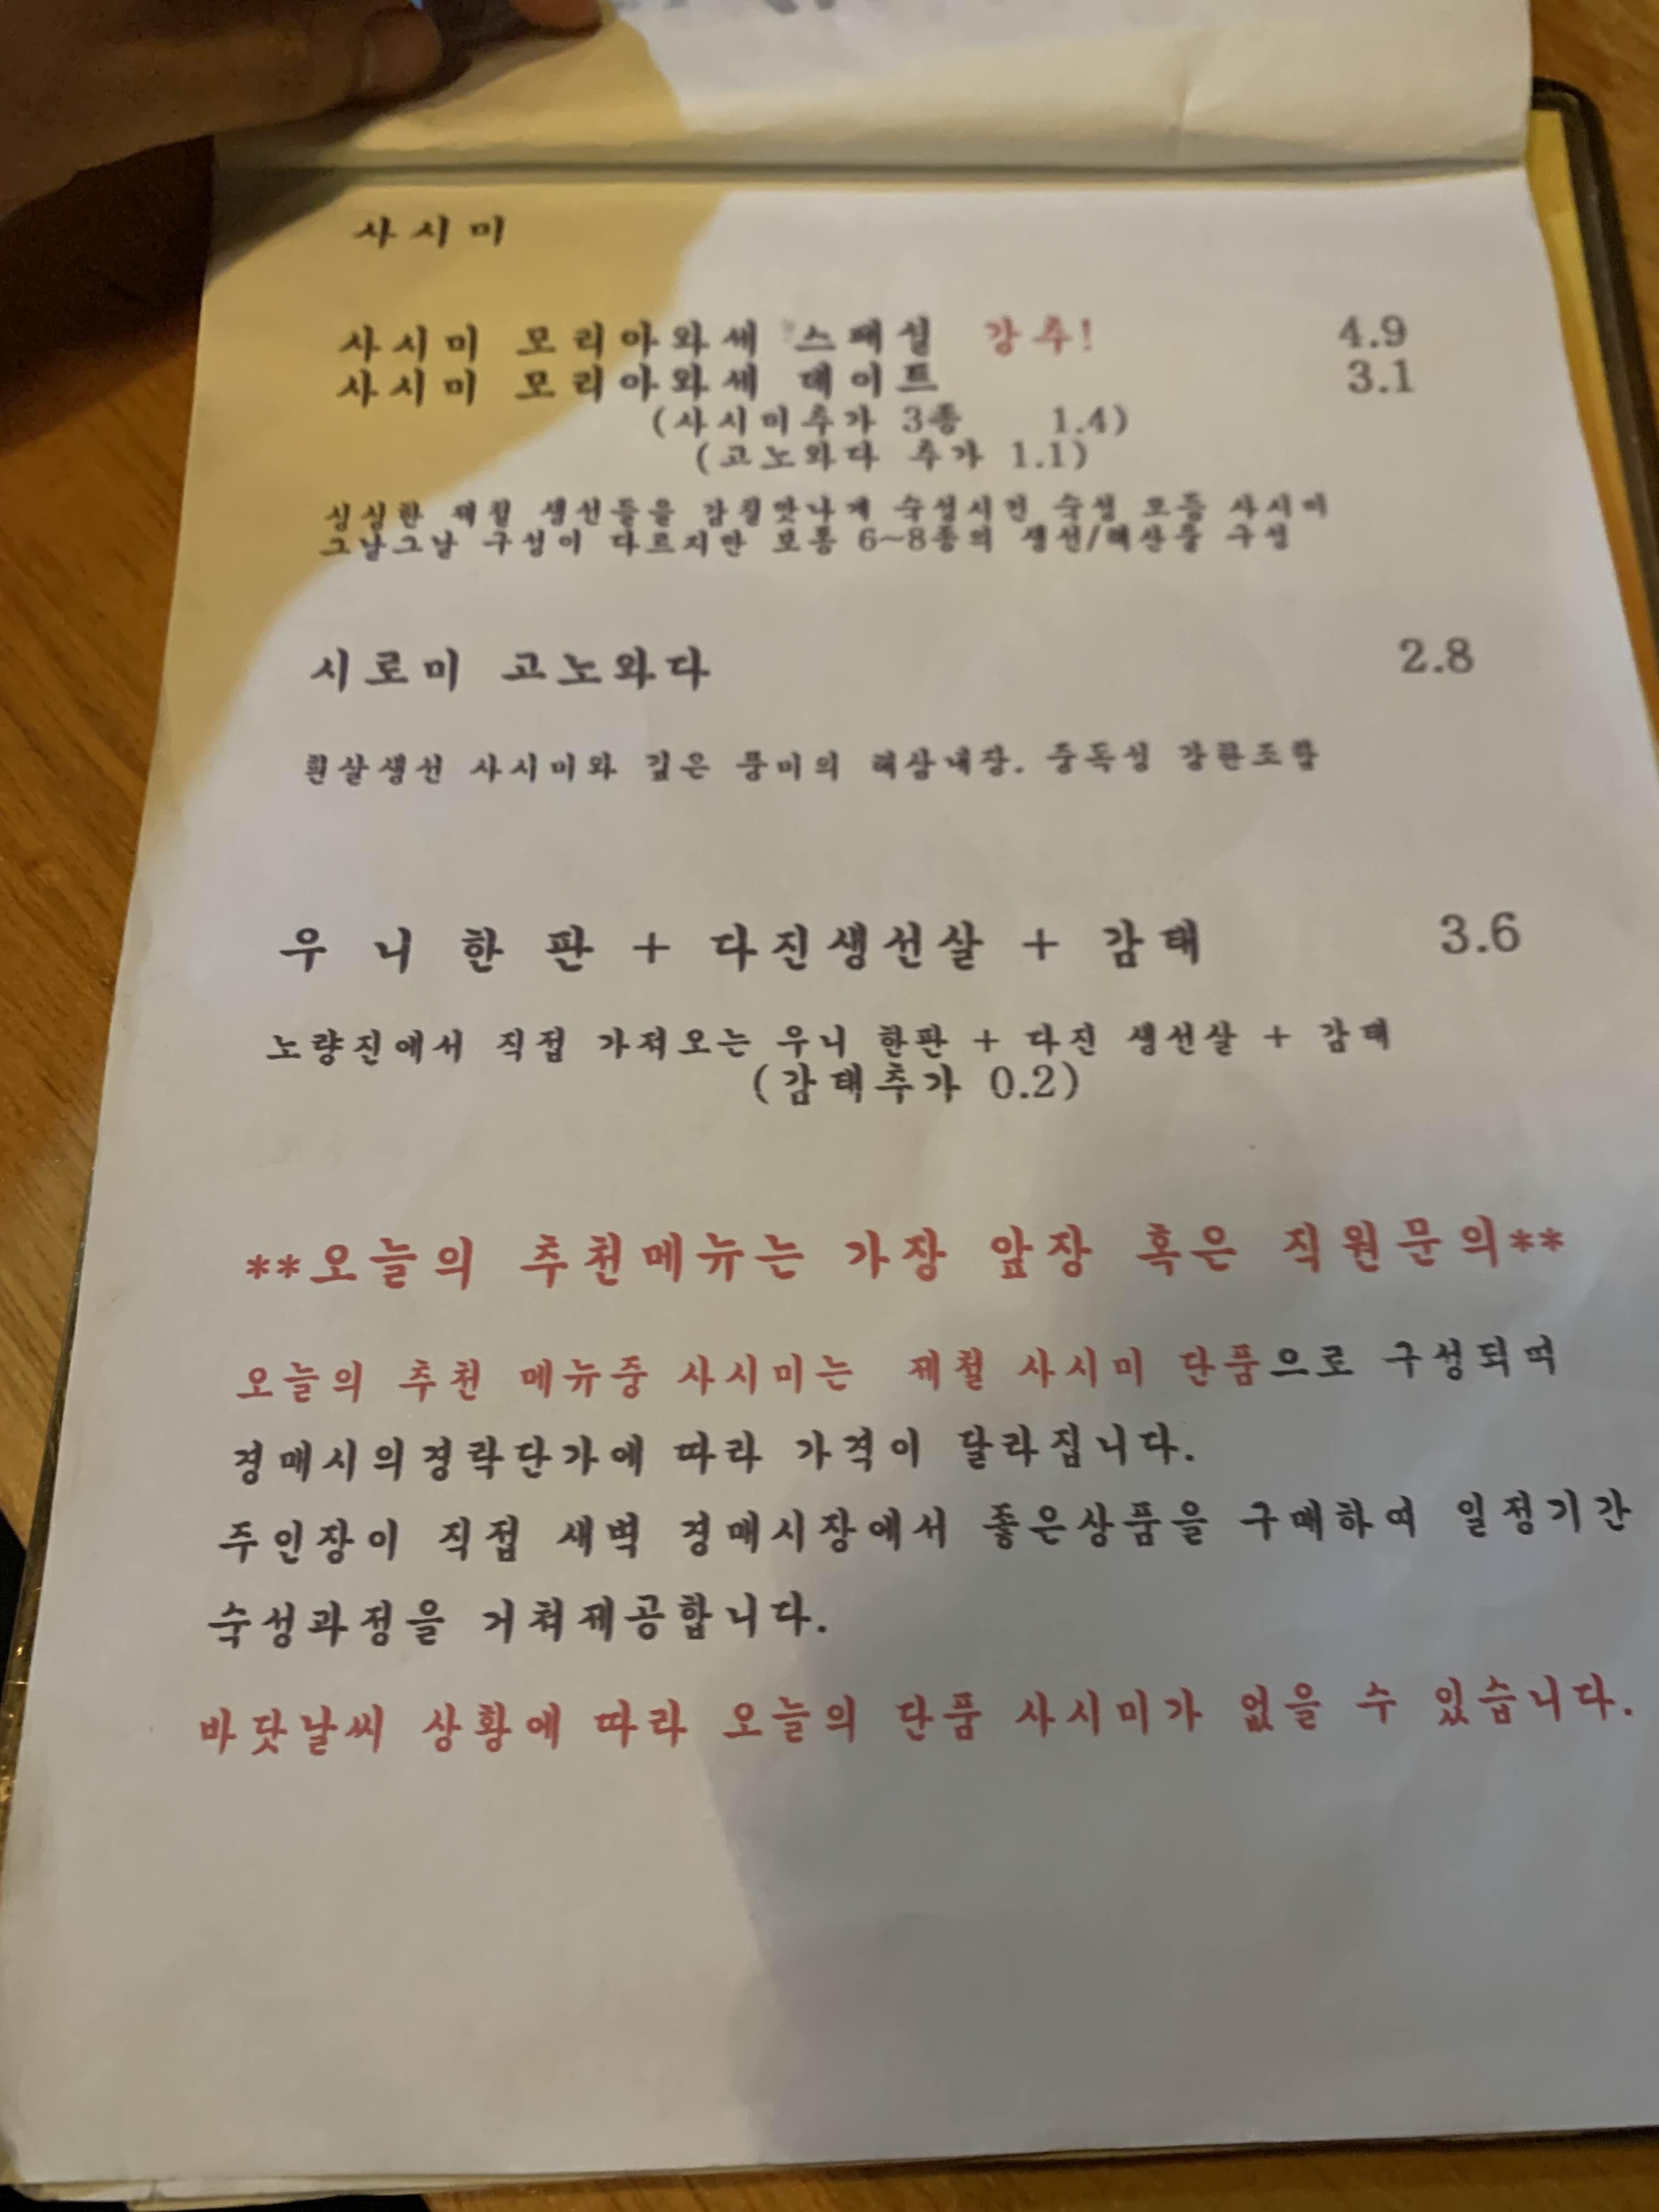 사시미
사시미 모리아와세 스페셜 강추! 4.9
사시미 모리아와세 데이트 3.1
(사시미추가 3종 1.4)
(고노와다 추가 1.1)
싱싱한 제철 생선들을 감칠맛나게 숙성시킨 숙성 모듬 사시미
그날그날 구성이 다르지만 보통 6~8종의 생선/해산물 구성
시로미 고노와다 2.8
흰살생선 사시미와 깊은 풍미의 해삼내장. 중독성 강한조합
우 니 한 판 + 다진생선살 + 감태 3.6
노량진에서 직접 가져오는 우니 한판 + 다진 생선살 + 감태
(감태추가 0.2)
**오늘의 추천메뉴는 가장 앞장 혹은 직원문의**
오늘의 추천 메뉴중 사시미는 제철 사시미 단품으로 구성되며
경매시의경락단가에 따라 가격이 달라집니다.
주인장이 직접 새벽 경매시장에서 좋은상품을 구매하여 일정기간
숙성과정을 거쳐제공합니다.
바닷날씨 상황에 따라 오늘의 단품 사시미가 없을 수 있습니다.